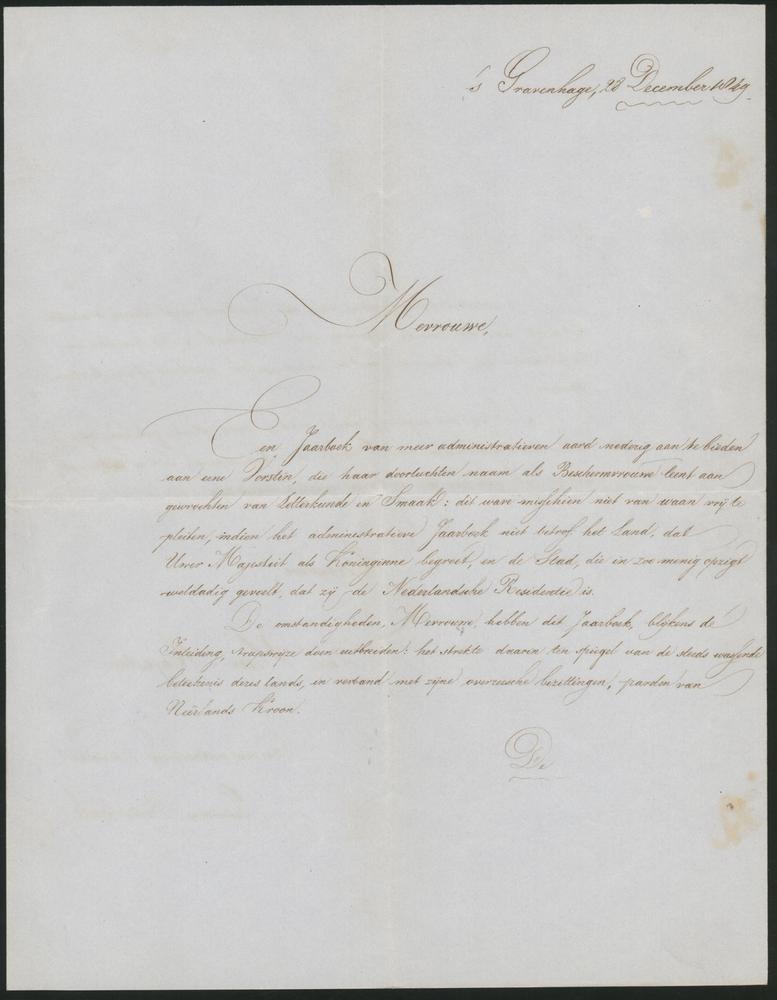 's Gravenhage, 28 December 1849.
Mevrouwe,
Een Jaarboek van meer administratieven aard nederig aan te bieden
aan eene Vorstin, die haar doorluchten naam als Beschermvrouwe leent aan
gewrochten van Letterkunde en Smaak: dit ware misschien niet van waan vrij te
pleiten, indien het administratieve Jaarboek niet betrof het Land, dat
Uwer Majesteit als Koninginne begroet, en de Stad, die in zoo menig opzigt
weldadig gevoelt, dat zij de Nederlandsche Residentie is.
De omstandigheden, Mevrouwe, hebben dit Jaarboek, blijkens de
Inleiding, trapswijze doen uitbreiden: het strekte daarin ten spiegel van de steeds wassende
beteekenis dezes lands, in verband met zijne overzeesche bezittingen, paarden van
Neêrlands Kroon.
De